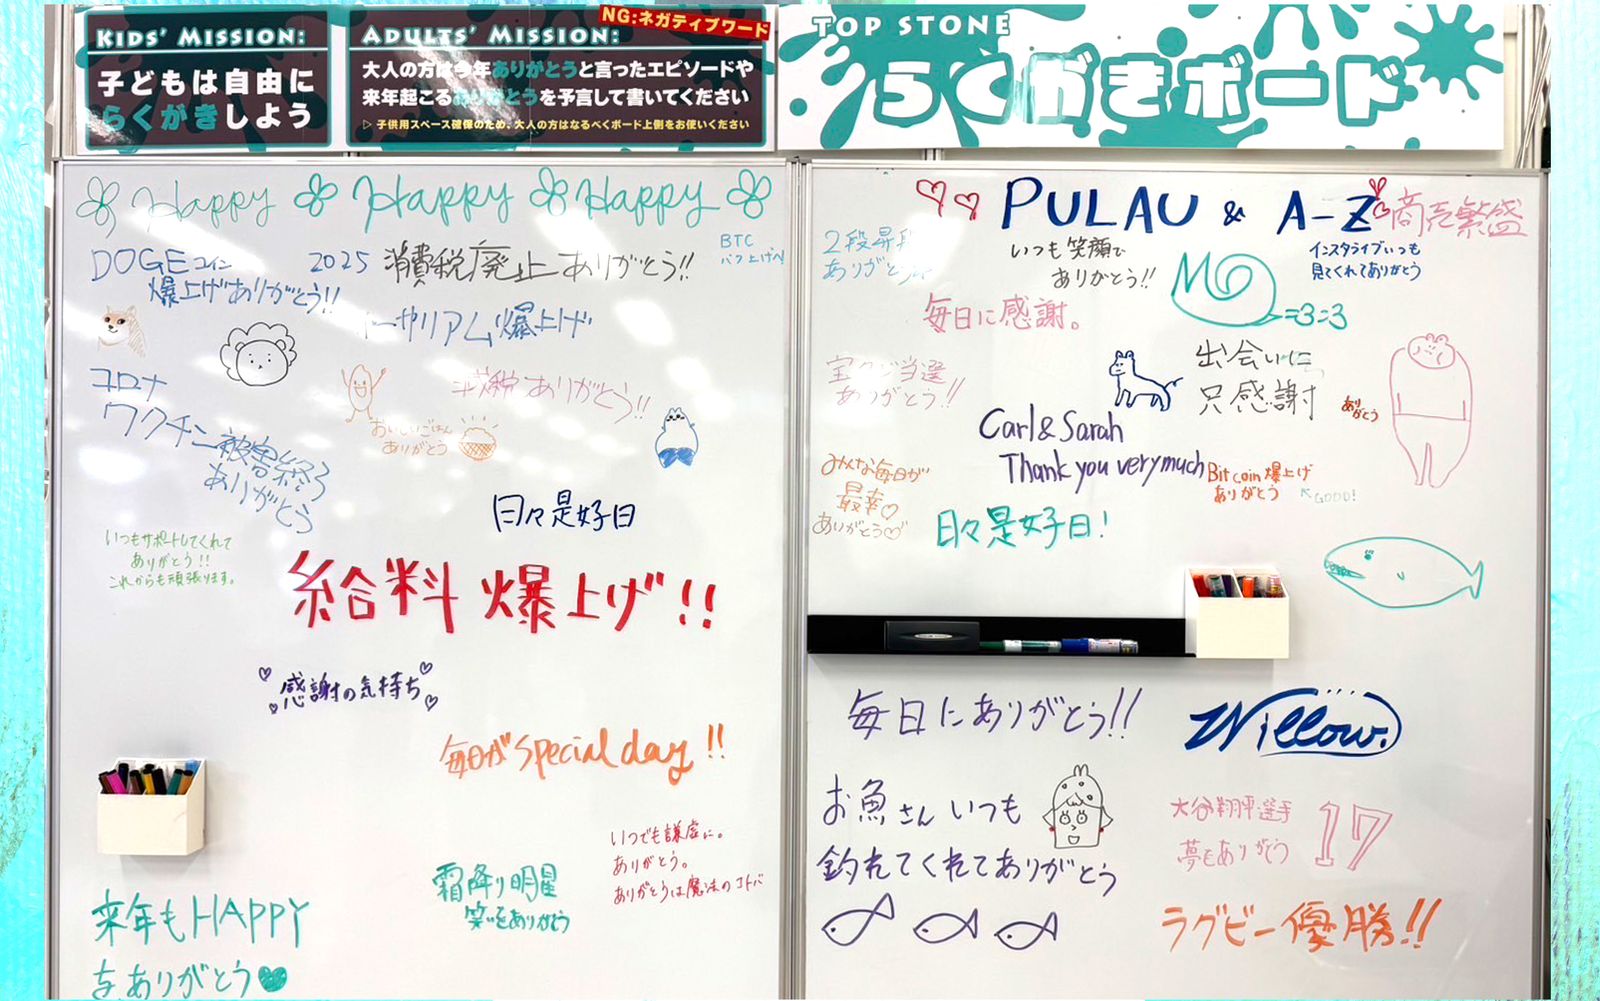 KIDS' MISSION:
子どもは自由に
らくがきしよう
ADULTS' MISSION:
NG:ネガティブワード
大人の方は今年ありがとうと言ったエピソードや
来年起こるありがとうを予言して書いてください
▷ 子供用スペース確保のため、大人の方はなるべくボード上側をお使いください
TOP STONE
らくがきボード
Happy Happy Happy
DOGEコイン
爆上げありがとう!!
2025 消費税廃止ありがとう!!
BTC
イーサリアム爆上げ
コロナ
ワクチン被害終了
ありがとう
減税ありがとう!!
おいしいごはん
ありがとう
日々是好日
いつもサポートしてくれて
ありがとう!!
これからも頑張ります。
給料 爆上げ!!
感謝の気持ち
毎日がspecial day!!
いつでも謙虚に。
ありがとう。
ありがとうは魔法のコトバ
霜降り明星
笑いをありがとう
来年もHAPPY
をありがとう
PULAU & A-Z
商売繁盛
2段昇段
ありがとう
いつも笑顔で
ありがとう!!
インスタライブいつも
見てくれてありがとう
毎日に感謝。
=3=3
出会いに
只感謝
宝クジ当選
ありがとう!!
ありがとう
Carl & Sarah
Thank you very much
みんな毎日が
最幸♡
ありがとう♡
Bitcoin爆上げ
ありがとう
GOOD!
日々是好日!
毎日にありがとう!!
Willow.
お魚さんいつも
釣れてくれてありがとう
大谷翔平選手
夢をありがとう
17
ラグビー優勝!!